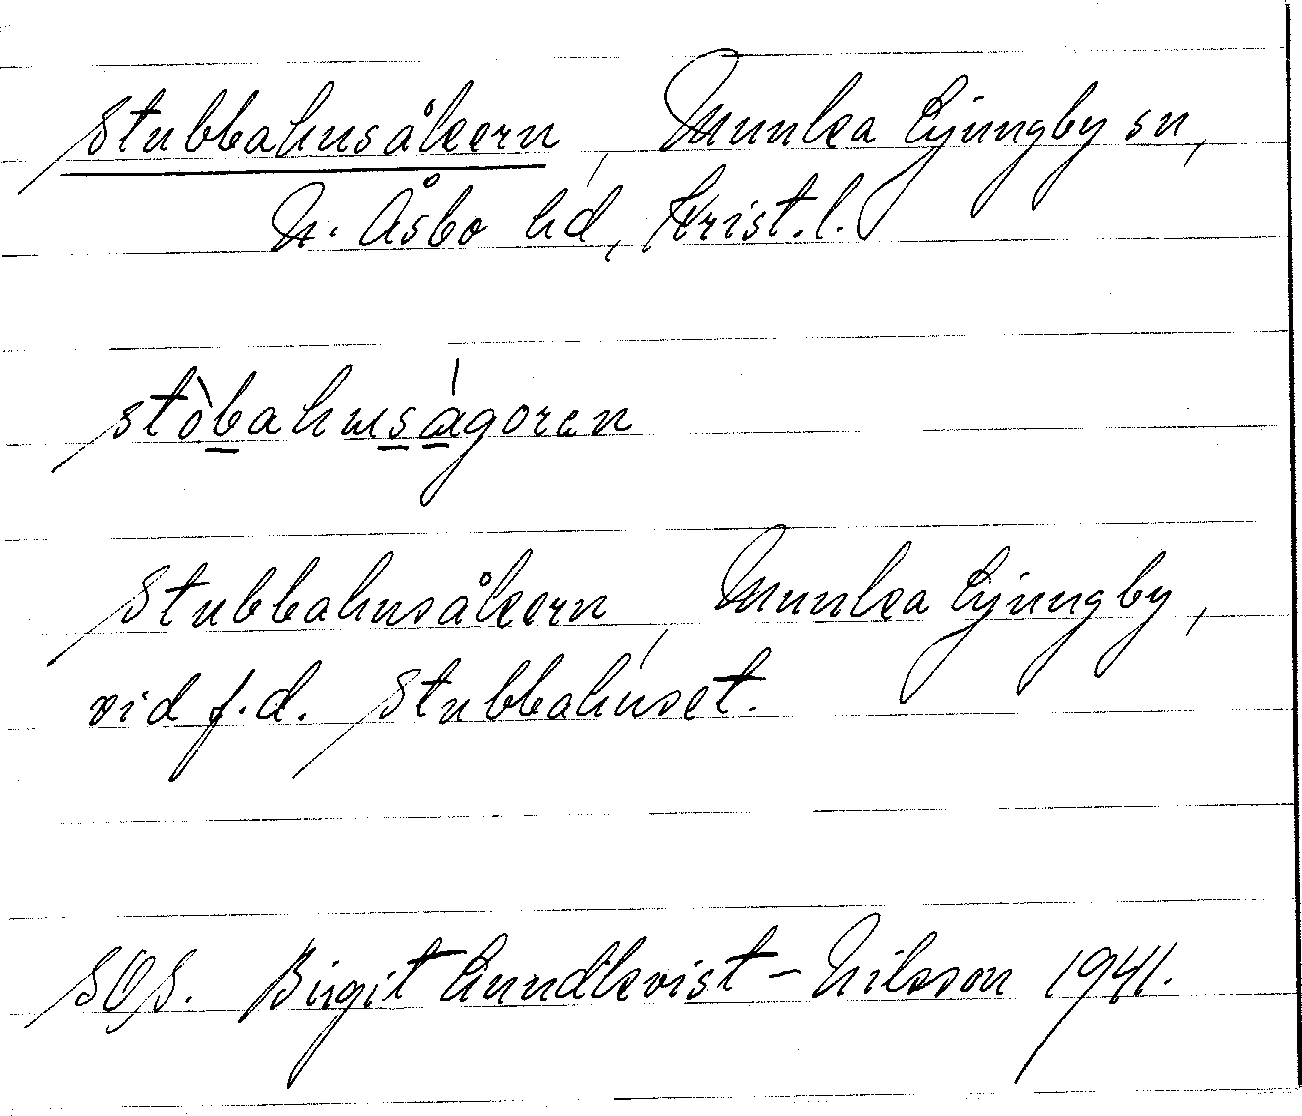 Stubbahusåkern, Munka Ljungby sn,
N. Åsbo hd, Krist. l.
stòbahuságoren
Stubbahusåkern, Munka Ljungby,
vid f.d. Stubbahuset.
SOS. Birgit Lundkvist-Nilsson 1941.